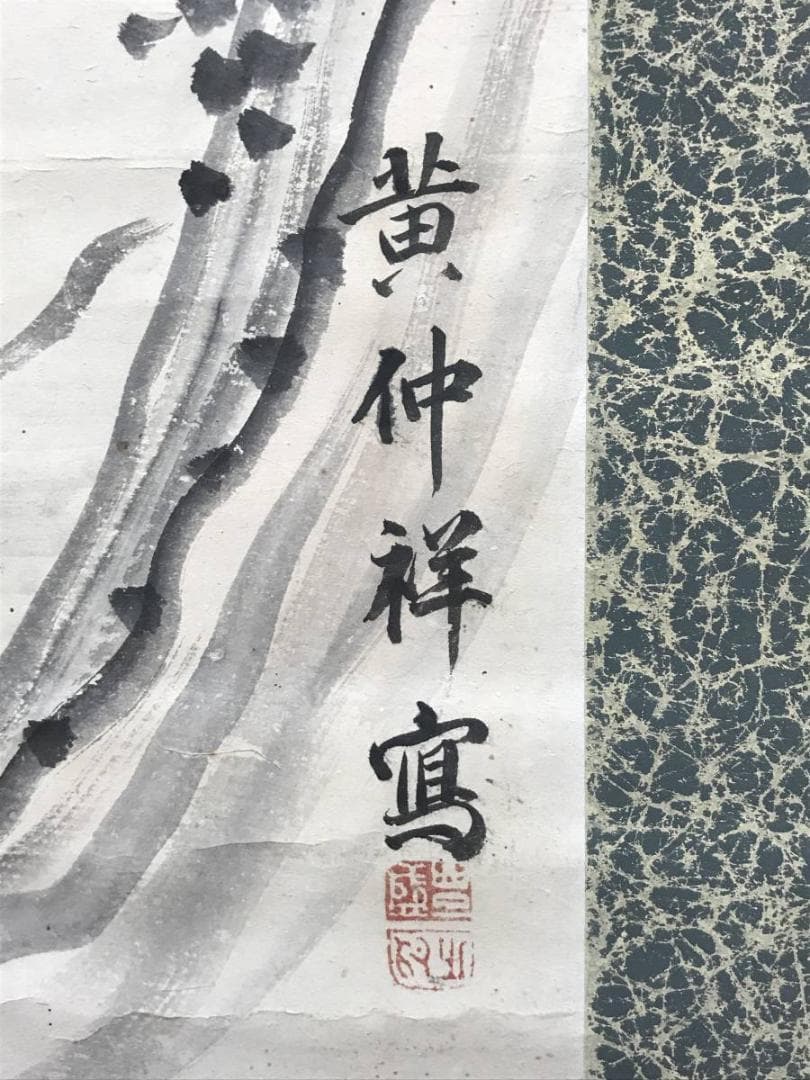 黄仲祥寫